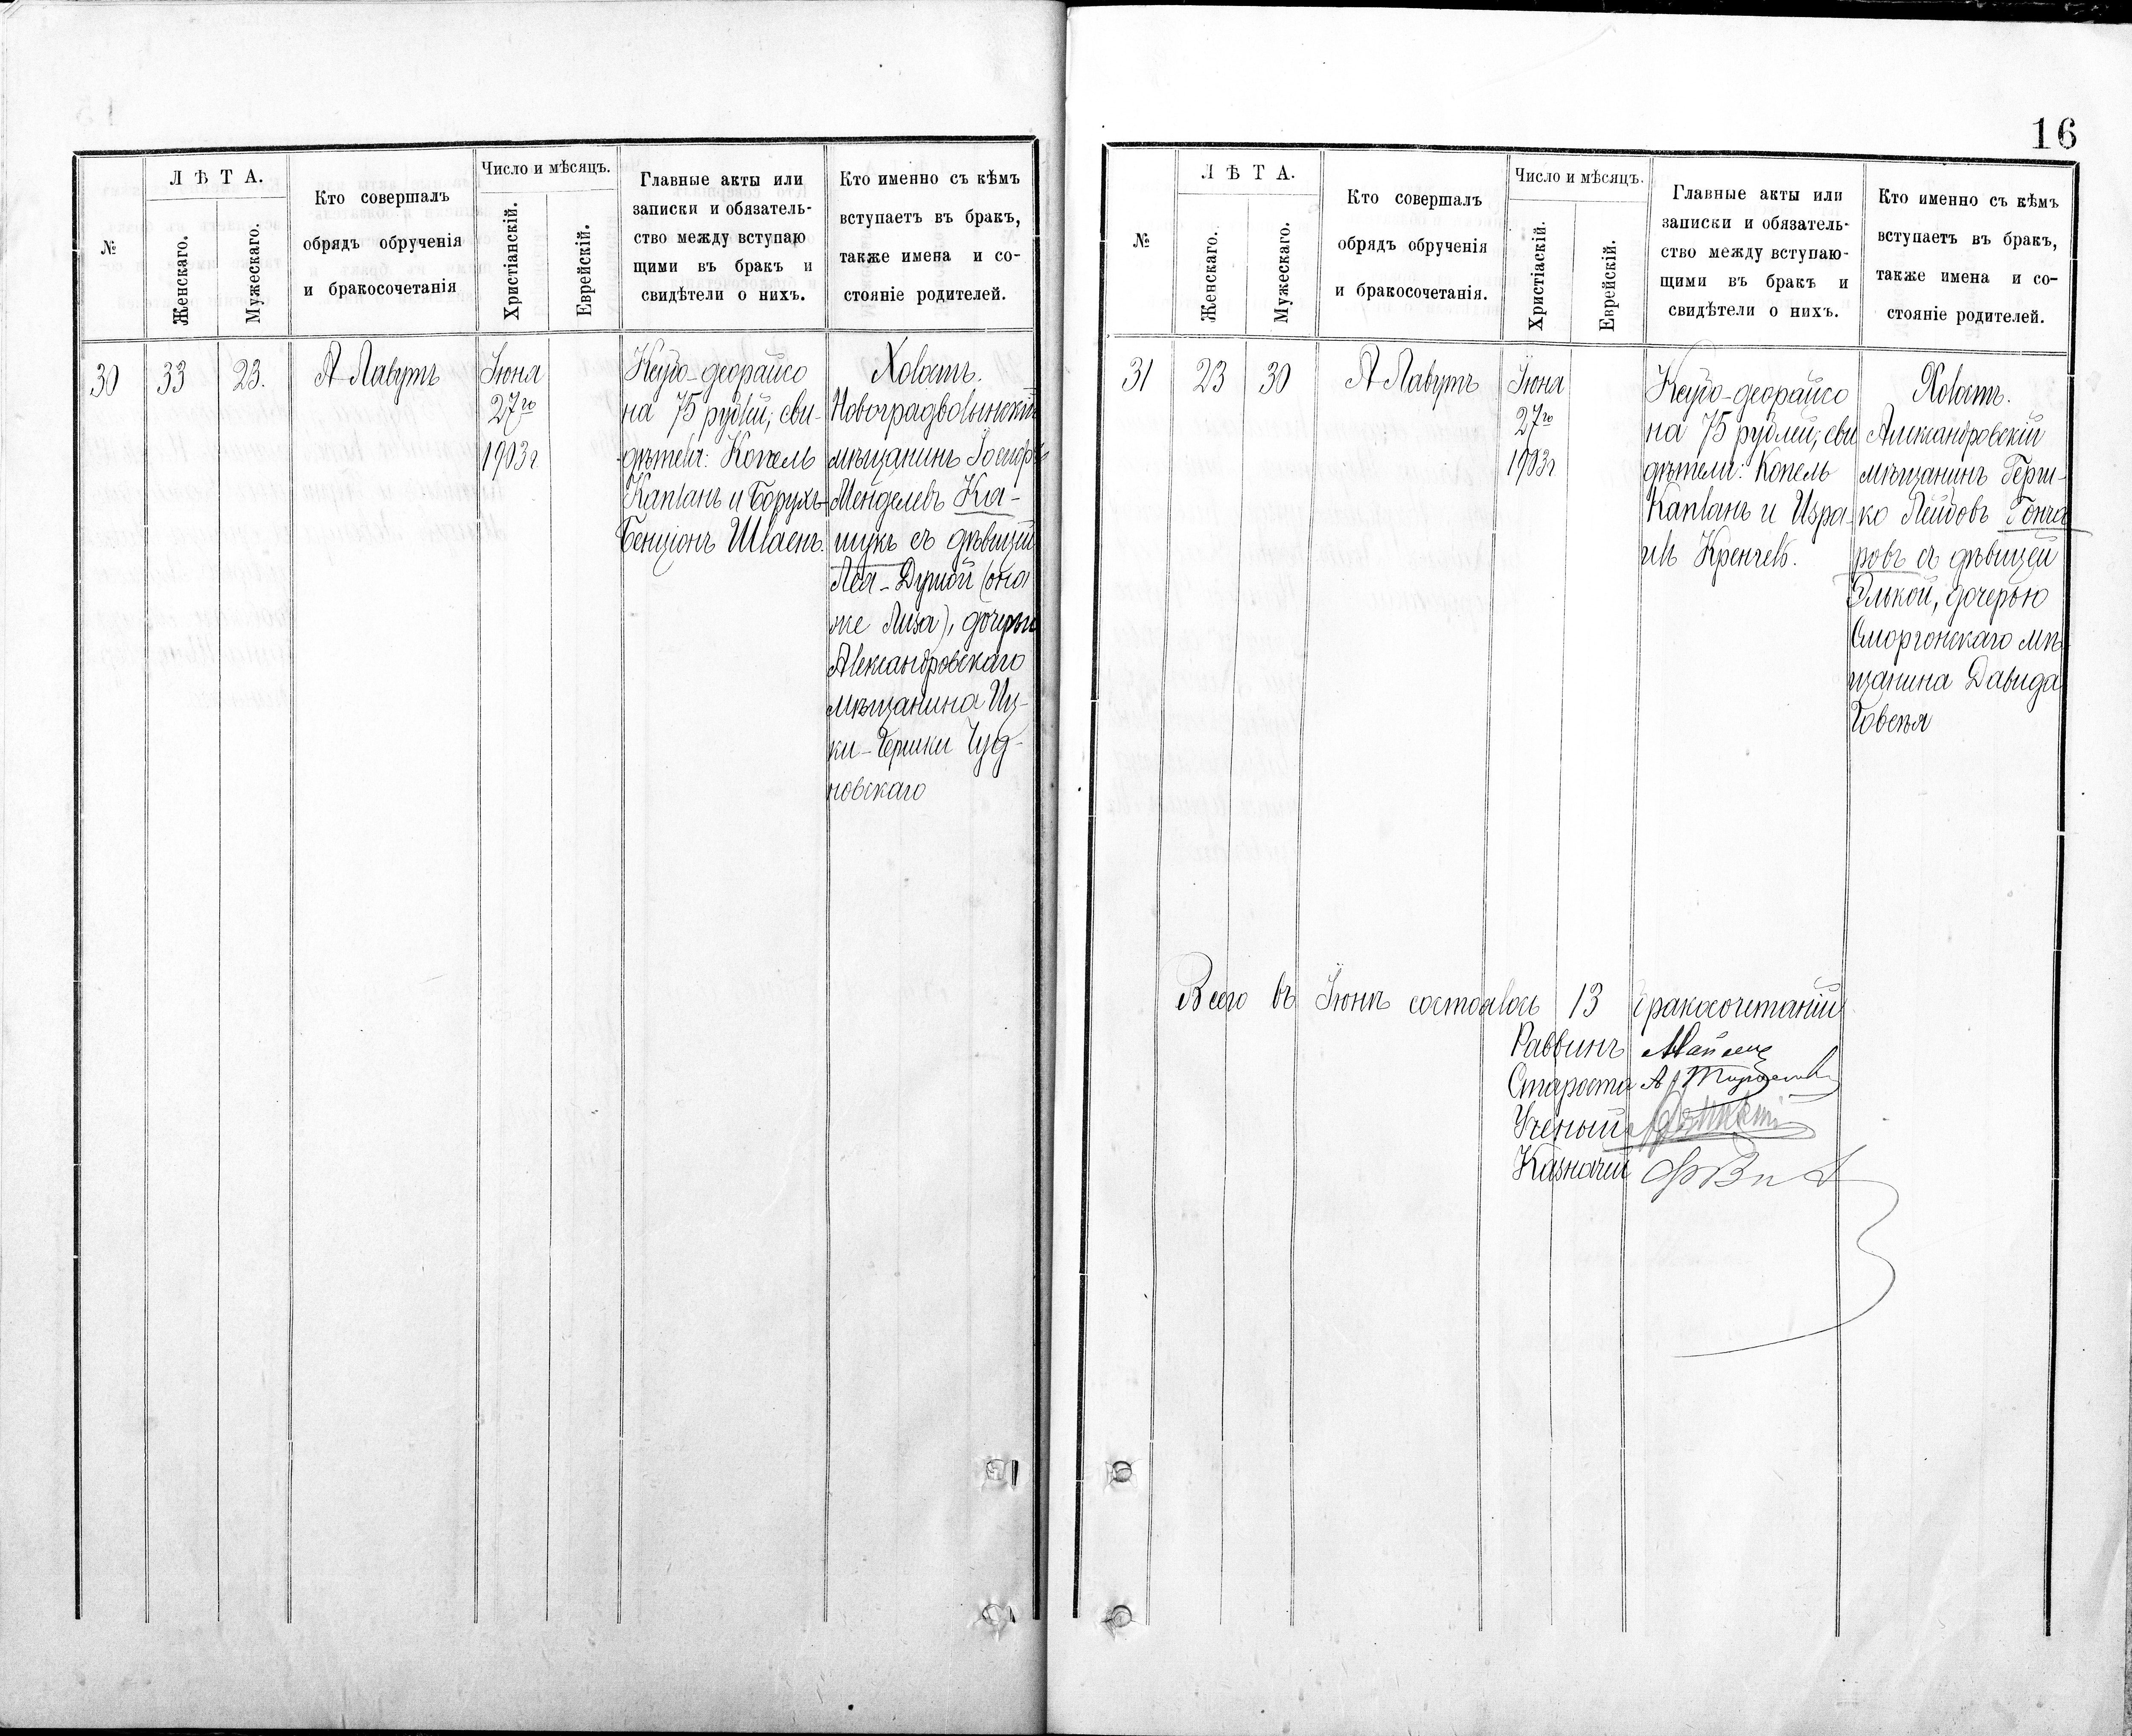 №
Л Ѣ Т А.
Женскаго.
Мужескаго.
Кто совершалъ
обрядъ обрученія
и бракосочетанія
Число и мѣсяцъ.
Христіанскій.
Еврейскій.
Главные акты или
записки и обязатель-
ство между вступаю
щими въ бракъ и
свидѣтели о нихъ.
Кто именно съ кѣмъ
вступаетъ въ бракъ,
также имена и со-
стояніе родителей.
30
33
23.
А Лавутъ
Іюня
27го
1903г
Ксубо-деорайсо
на 75 рублей; сви-
дѣтели: Копель
Капланъ и Борухъ-
Бенціонъ Шваенъ.
Холостъ.
Новоградволынскій
мѣщанинъ Іосифъ
Менделевъ Ка-
шукъ съ дѣвицей
Леа-Дуней (она
же Лиза), дочерью
Александровскаго
мѣщанина Иц-
ки-Берики Чуд-
новскаго
16
№
Л Ѣ Т А.
Женскаго.
Мужескаго.
Кто совершалъ
обрядъ обрученія
и бракосочетанія.
Число и мѣсяцъ.
Христіаскій.
Еврейскій.
Главные акты или
записки и обязатель-
ство между вступаю-
щими въ бракъ и
свидѣтели о нихъ.
Кто именно съ кѣмъ
вступаетъ въ бракъ,
также имена и со-
стояніе родителей.
31
23
30
А Лавутъ
Іюня
27го
1903г
Ксубо-деорайсо
на 75 рублей; сви
дѣтели: Копель
Капланъ и Изра-
иль Кренчевъ.
Холостъ.
Александровскій
мѣщанинъ Герш-
ко Лейбовъ Гонча
ровъ съ дѣвицей
Элькой, дочерью
Сморгонскаго мѣ
щанина Давида
Всего въ Іюнѣ состоялось 13 бракосочетаній
Раввинъ
Староста
Ученый
Казначей